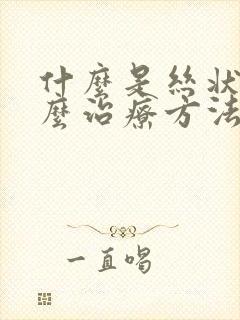 什麼是絲狀
麼治療方法
一直唱